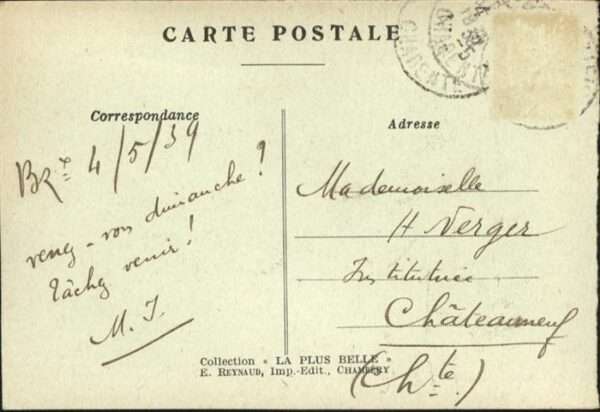 CARTE POSTALE
Correspondance
Adresse
4/5/39
venez-vous dimanche?
Tâchez venir!
M. J.
Mademoiselle
H Verger
Institutrice
Châteauneuf
(Chte.)
Collection « LA PLUS BELLE »
E. REYNAUD, Imp.-Edit., CHAMBÉRY
CHARENTE